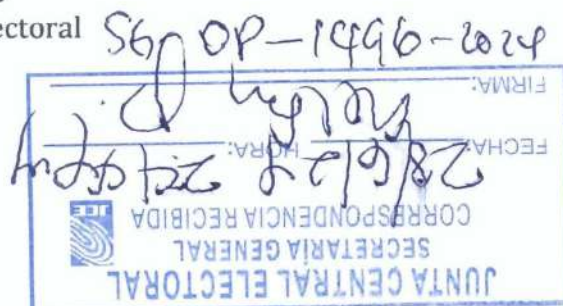 ectoral SG OP-1496-2024
JUNTA CENTRAL ELECTORAL
SECRETARÍA GENERAL
CORRESPONDENCIA RECIBIDA
JCE
FECHA: HORA:
FIRMA: